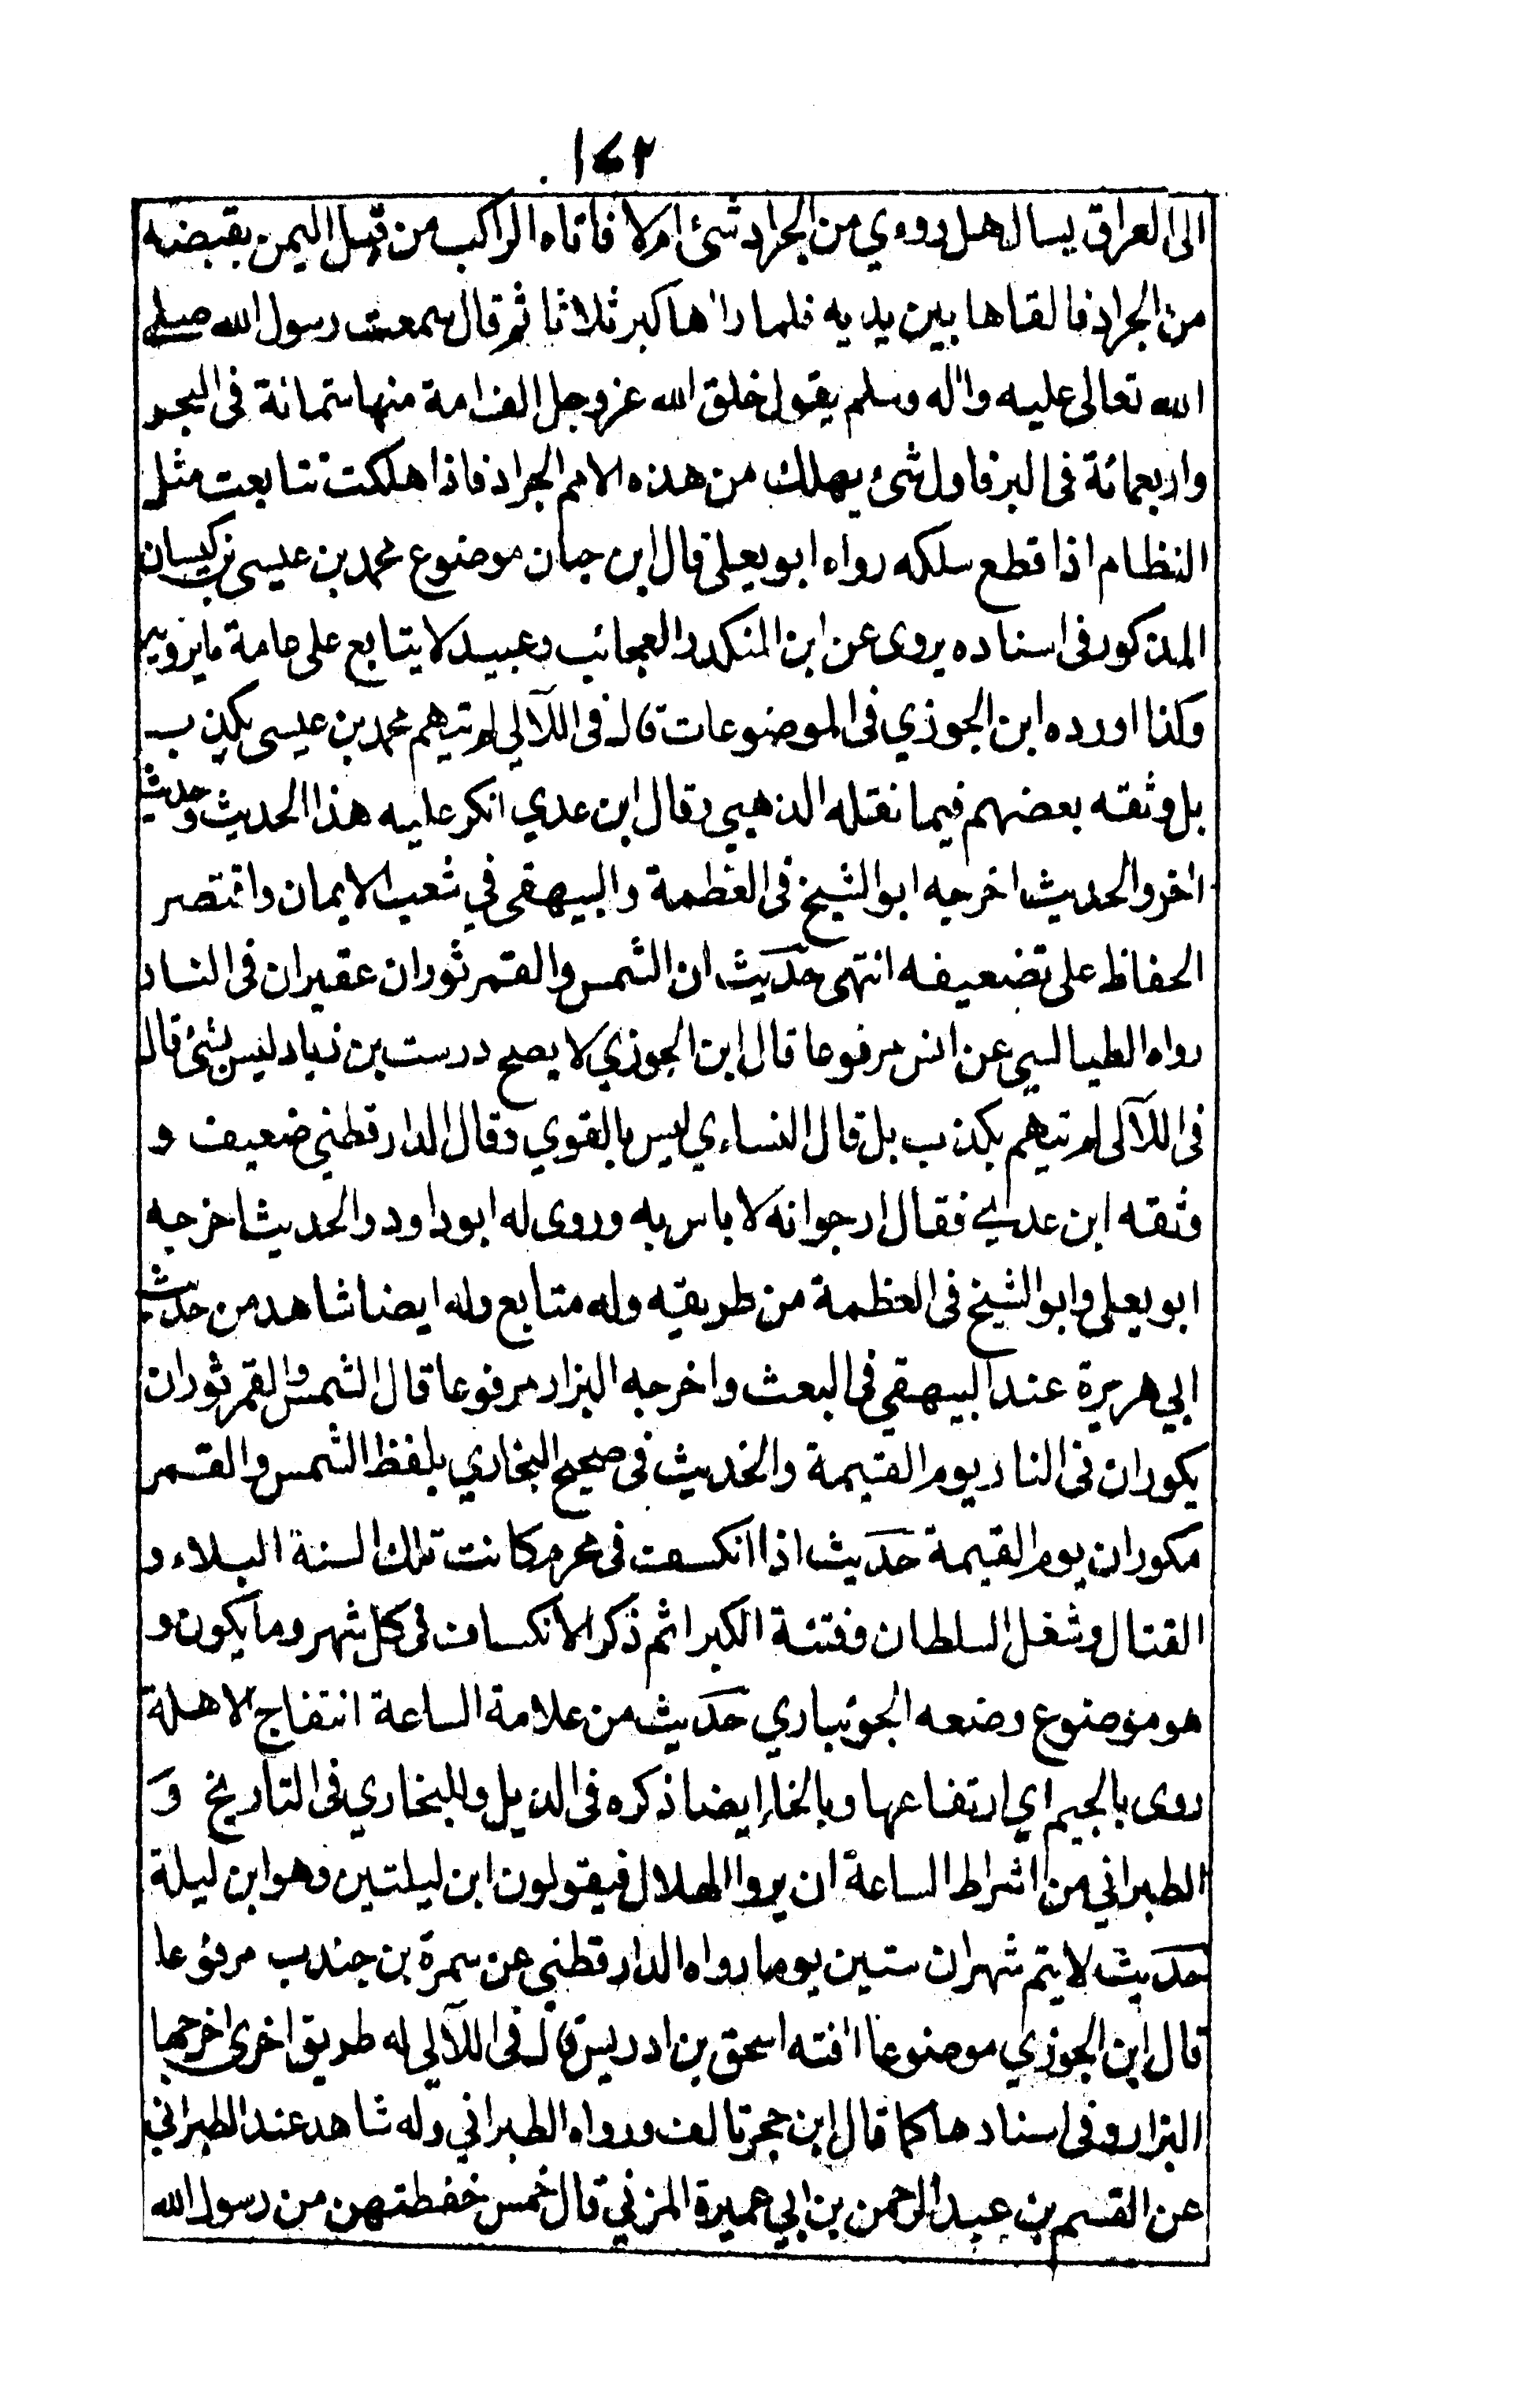 ١٧٢
الى العراق يسال هل روءي من الجراد شئ ام لا فاتاه الراكب من قبل اليمن بقبضه
من الجراد فالقاها بين يديه فلما راٰها كبر ثلاثا ثم قال سمعت رسول الله صلى
الله تعالى عليه واٰله وسلم يقول خلق الله عز وجل الف امة منها ستمائة فى البحر
واربعمائة فى البر فاول شئ يهلك من هذه الامم الجراد فاذا هلكت تتابعت مثل
النظام اذا قطع سلكه رواه ابو يعلى قال ابن حبان موضوع محمد بن عيسى بن كيسان
المذكور فى اسناده يروى عن ابن المنكدر العجائب وعبيد لا يتابع على عامة ما يرويه
وكذا اورده ابن الجوزي فى الموضوعات قال فى اللآلي لم يتهم محمد بن عيسى بكذب
بل وثقه بعضهم فيما نقله الذهبي وقال ابن عدي انكر عليه هذا الحديث وحديث
اخر والحديث اخرجه ابو الشيخ فى العظمة والبيهقى في شعب الايمان واقتصر
الحفاظ على تضعيفه انتهى حديث ان الشمس والقمر ثوران عقيران فى النار
رواه الطيالسي عن انس مرفوعا قال ابن الجوزي لا يصح درست بن زياد ليس بشئ قال
فى اللآلى لم يتهم بكذب بل قال النساءي ليس بالقوي وقال الدارقطني ضعيف و
وثقه ابن عدي فقال ارجوا نه لا باس به وروى له ابو داود والحديث اخرجه
ابو يعلى وابو الشيخ فى العظمة من طريقه وله متابع وله ايضا شاهد من حديث
ابي هريرة عند البيهقي فى البعث واخرجه البزار مرفوعا قال الشمس والقمر ثوران
يكوران فى النار يوم القيمة والحديث فى صحيح البخاري بلفظ الشمس والقمر
مكوران يوم القيمة حديث اذا انكسفت فى محرم كانت تلك السنة البلاء و
القتال وشغل السلطان وفتنة الكبرا ثم ذكر الانكساف فى كل شهر وما يكون و
هو موضوع وضعه الجوئباري حديث من علامة الساعة انتفاج الاهلة
روى بالجيم اي ارتفاعها وبالخاء ايضا ذكره فى الذيل وللبخاري فى التاريخ و
الطبراني من اشراط الساعة ان يروا الهلال فيقولون ابن ليلتين وهو ابن ليلة
حديث لا يتم شهران ستين يوما رواه الدارقطني عن سمرة بن جندب مرفوعا
قال ابن الجوزي موضوعا افته اسحق بن ادريس قال فى اللآلي له طريق اخرى اخرجها
البزار وفى اسنادها كما قال ابن حجر تالف ورواه الطبراني وله شاهد عند الطبراني
عن القسم بن عبد الرحمن بن ابي عميرة المزني قال خمس حفظتهن من رسول الله